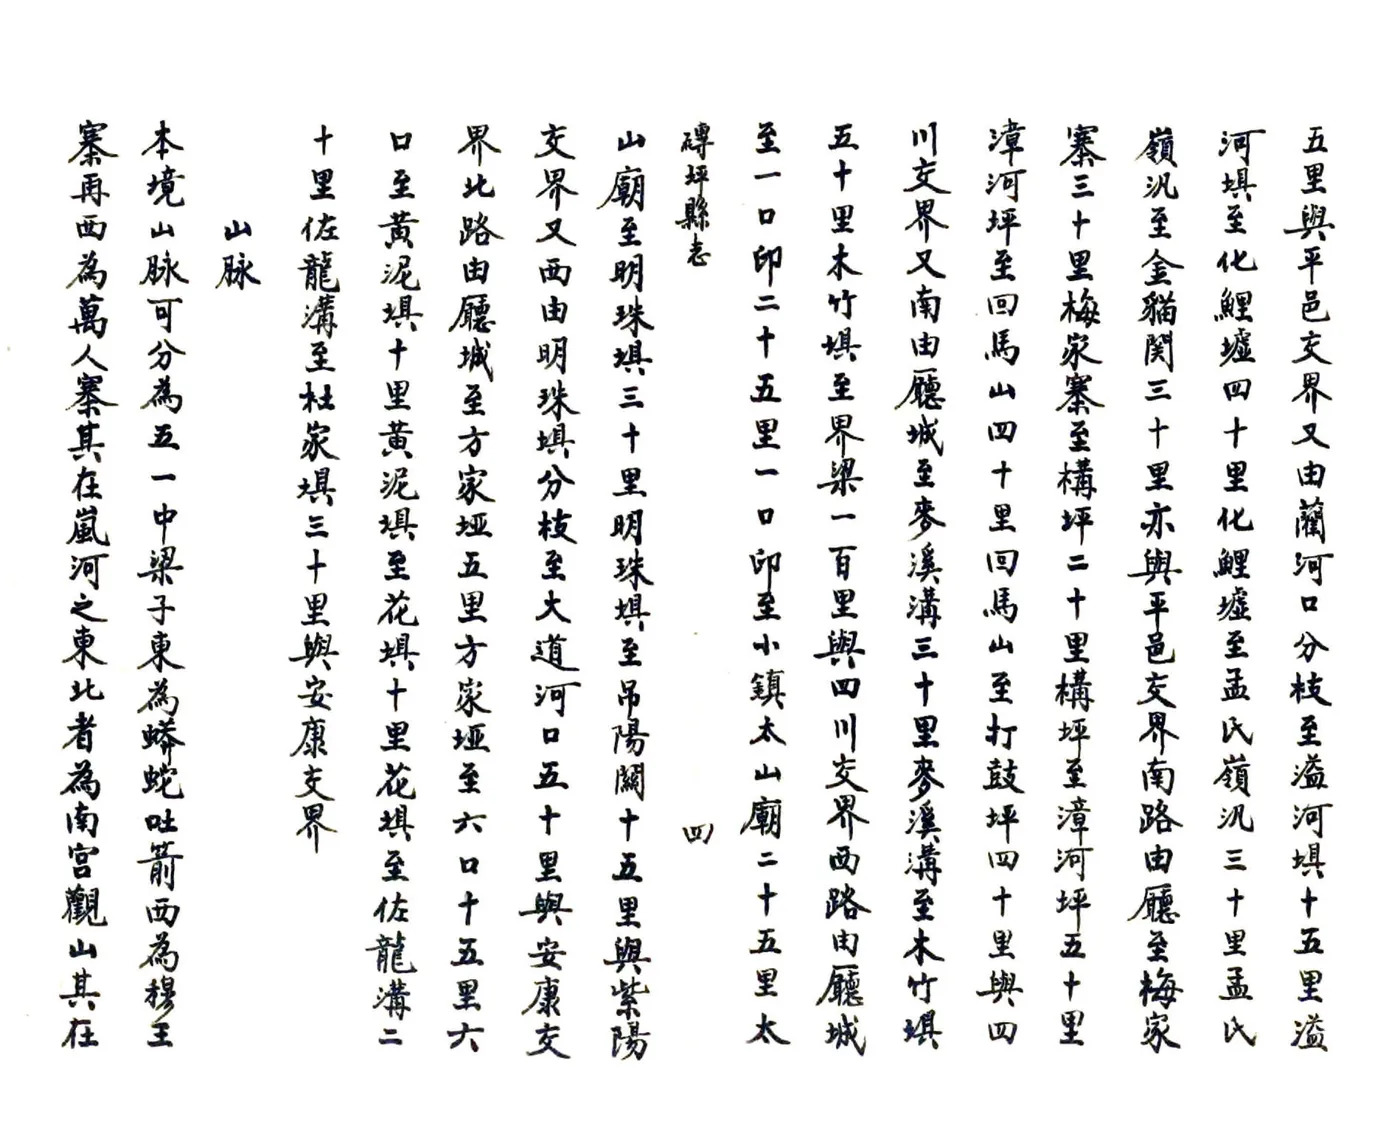 五里與平邑交界又由藺河口分枝至溢河埧十五里溢
河埧至化鯉墟四十里化鯉墟至孟氏嶺汛三十里孟氏
嶺汛至金貓関三十里亦與平邑交界南路由廳至梅家
寨三十里梅家寨至構坪二十里構坪至漳河坪五十里
漳河坪至回馬山四十里回馬山至打鼓坪四十里與四
川交界又南由廳城至麥溪溝三十里麥溪溝至木竹埧
五十里木竹埧至界梁一百里與四川交界西路由廳城
至一口印二十五里一口印至小鎮太山廟二十五里太
磚坪縣志 四
山廟至明珠埧三十里明珠埧至吊陽關十五里與紫陽
交界又西由明珠埧分枝至大道河口五十里與安康交
界北路由廳城至方家埡五里方家埡至六口十五里六
口至黃泥埧十里黃泥埧至花埧十里花埧至佐龍溝二
十里佐龍溝至杜家埧三十里與安康交界
山脉
本境山脉可分為五一中梁子東為蟒蛇吐箭西為穆王
寨再西為萬人寨其在嵐河之東北者為南宫觀山其在